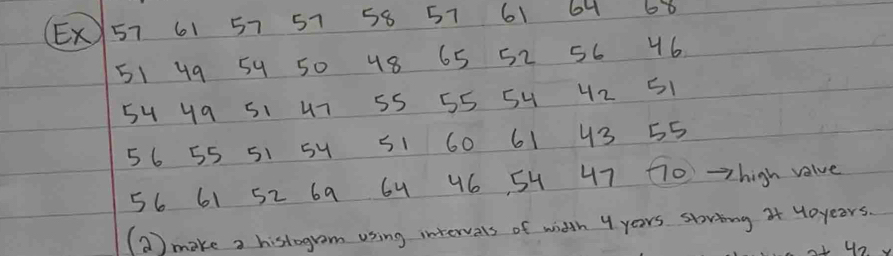 Ex 57 61 57 57 58 57 61 64 68
51 49 54 50 48 65 52 56 46
54 49 51 47 55 55 54 42 51
56 55 51 54 51 60 61 43 55
56 61 52 69 64 46 54 47 70 → high value
(a) make a histogram using intervals of width 4 years starting at 40 years.
at 42